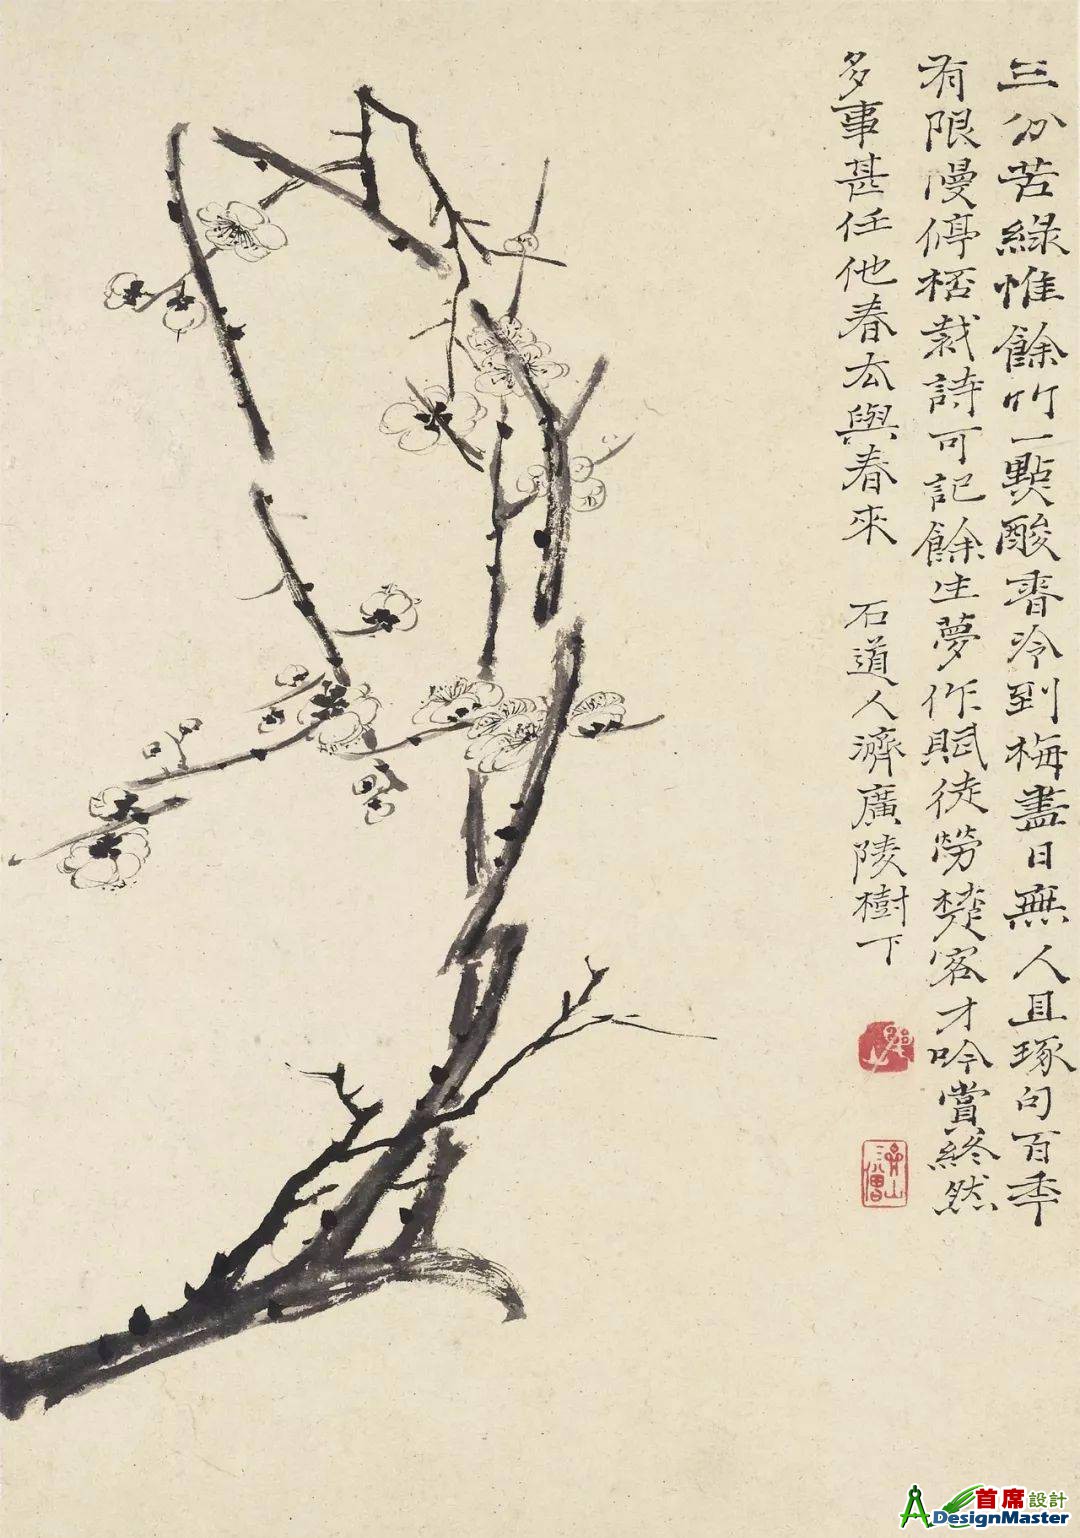 三分苦綠惟餘竹一點酸香冷到梅盡日無人且琢句百年
有限慢停桮裁詩可記餘生夢作賦徒勞楚客才吟賞終然
多事甚任他春去與春來 石道人濟廣陵樹下
清
山
僧
首席設計
DesignMaster